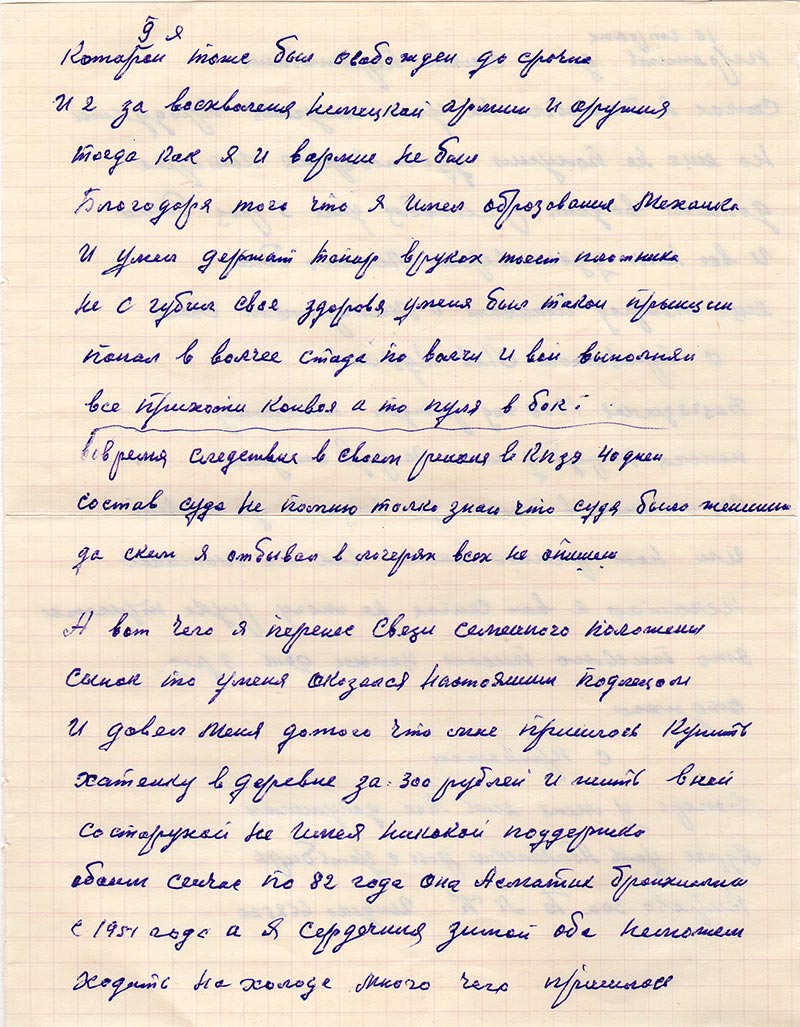 9 я
Которой тоже был освобожден до срочно
И 2 за восхваления Немецкой армии И оружия
тогда как я И вармие не был
Благодаря того что я Имел образования Механика
И умел держат топар вруках тоест плотника
не с губил свое здоровя уменя был такой прынцип
попал в волчее стада по волчи И вой выполняй
все прихоти Конвоя а то пуля в бок!
вовремя следствие в своем районе в Кпзя 40 дней
состав суда не помню толко знаю что судя была женшина
да скем я отбывал в логерях всех не опишеш
А вот чего я перенес Связи семейного положения
сынок то уменя оказался Настояшим подлецом
И довел Меня дотого что мне пришлось Купить
хатенку в деревне за 300 рублей И жить вней
состарухой не Имея никакой поддержки
обоим сейчас по 82 года Она Асматик
с 1951 года а я Сердечния зимой оба Неможем
Ходить На холоде много чего пришлося